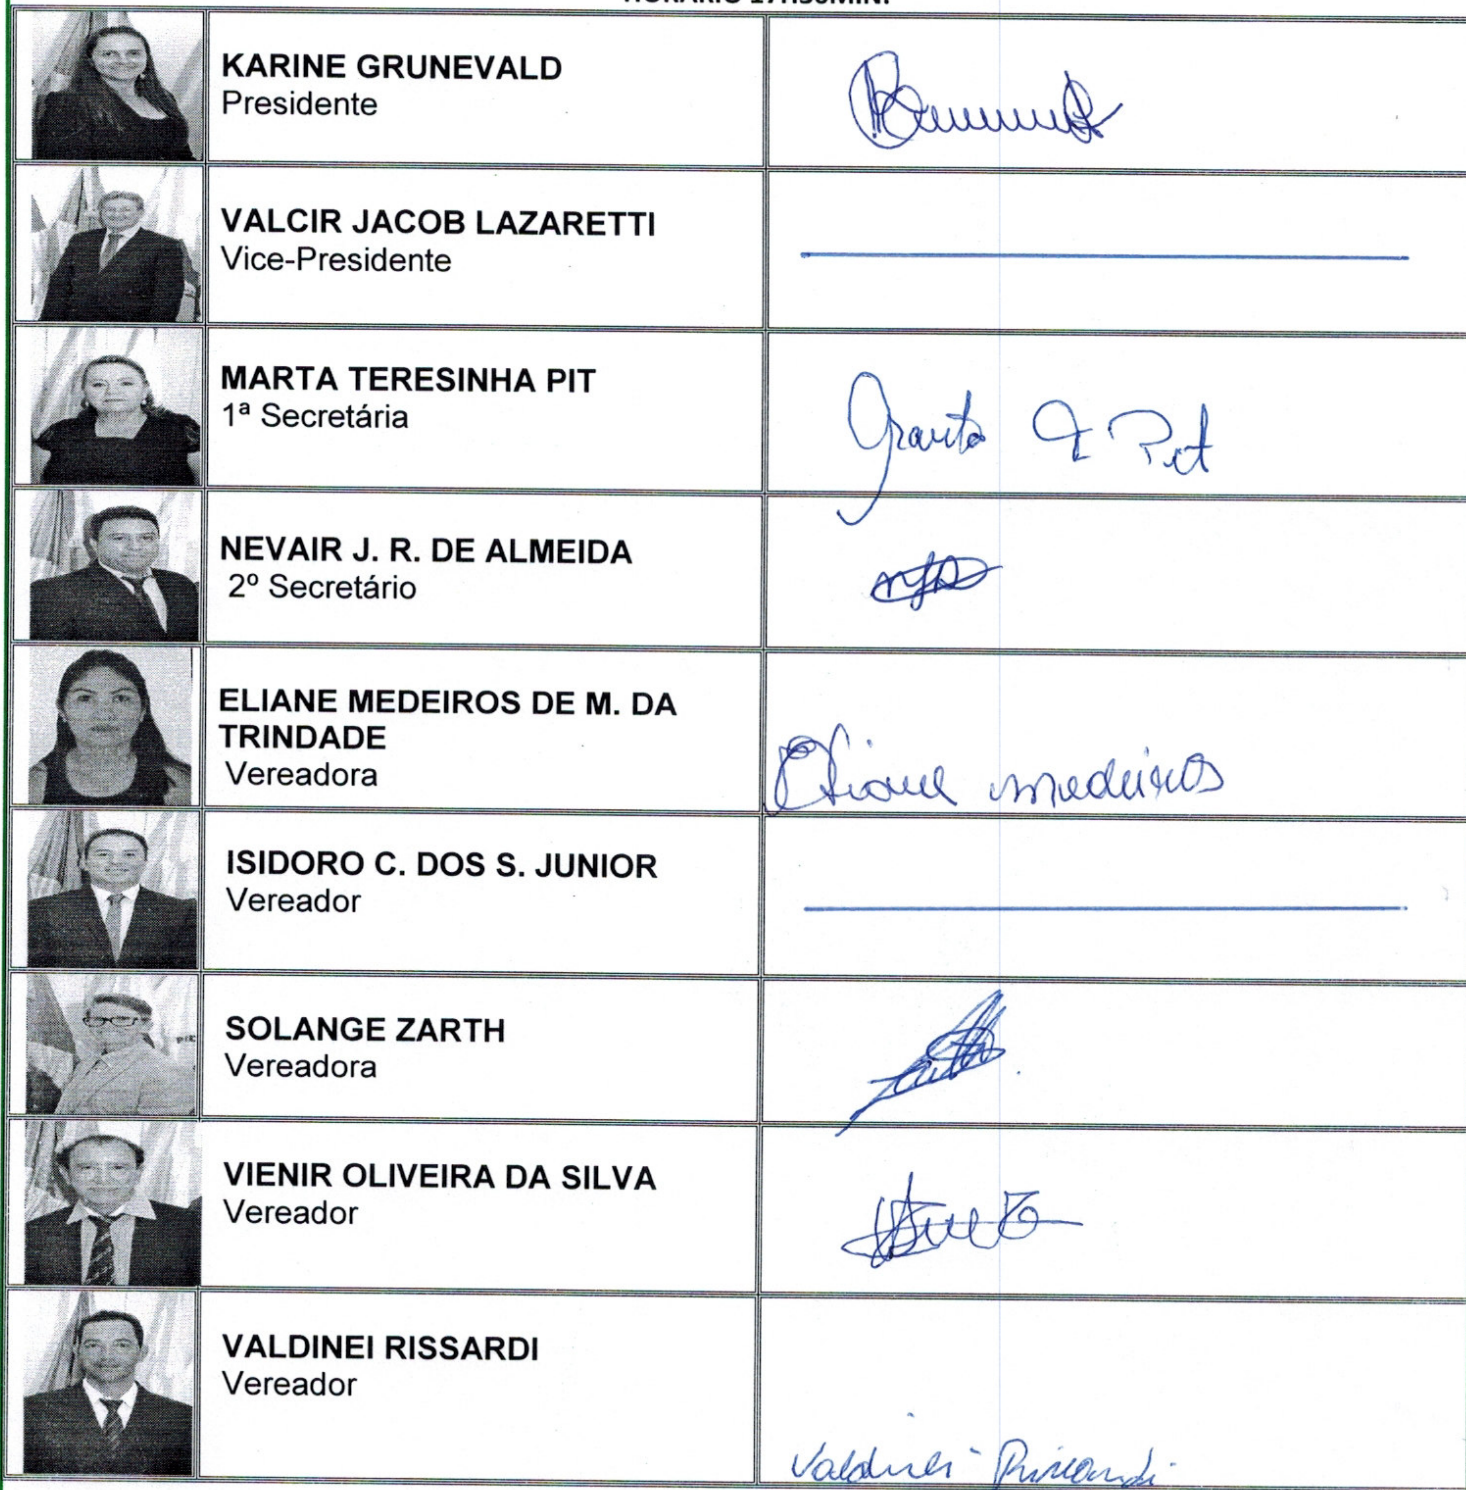 HORÁRIO 17H:30MIN.
KARINE GRUNEVALD
Presidente
VALCIR JACOB LAZARETTI
Vice-Presidente
MARTA TERESINHA PIT
1ª Secretária
Marta T Pit
NEVAIR J. R. DE ALMEIDA
2º Secretário
ELIANE MEDEIROS DE M. DA
TRINDADE
Vereadora
Eliane medeiros
ISIDORO C. DOS S. JUNIOR
Vereador
SOLANGE ZARTH
Vereadora
VIENIR OLIVEIRA DA SILVA
Vereador
VALDINEI RISSARDI
Vereador
Valdinei Rissardi